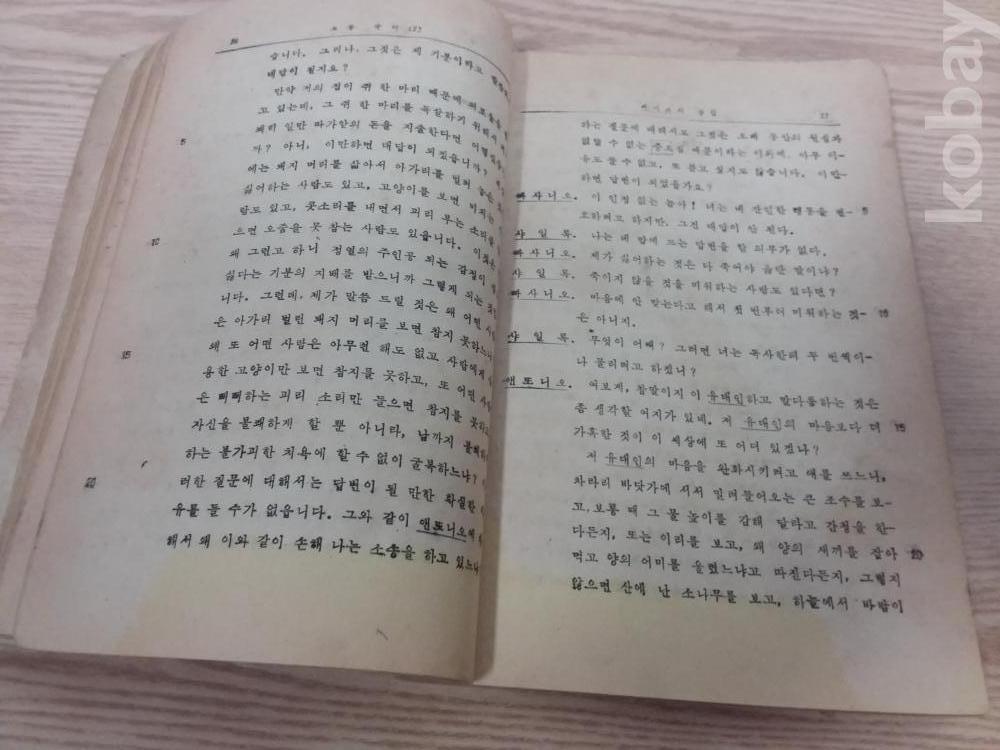 습니다. 그러나, 그것은 제 기분이라고
대답이 될지요?
만약 저의 집이 쥐 한 마리 때문에
고 있는데, 그 쥐 한 마리를 독살하기 위해서
쾌히 일만 따가앝의 돈을 지출한다면
가? 아니, 이만하면 대답이 되겠습니까?
에는 돼지 머리를 삶아서 아가리를 벌려 놓은
싫어하는 사람도 있고, 고양이를 보면 미치는
람도 있고, 콧소리를 내면서 피리 부는 소리를
으면 오줌을 못 참는 사람도 있읍니다.
왜 그런고 하니 정열의 주인공 되는 감정이
싫다는 기분의 지배를 받으니까 그렇게 되는
니다. 그런데, 제가 말씀 드릴 것은 왜 어떤
은 아가리 벌린 돼지 머리를 보면 참지 못하느냐
왜 또 어떤 사람은 아무런 해도 없고 사람에게
용한 고양이만 보면 참지를 못하고, 또 어떤
은 삐삐하는 피리 소리만 들으면 참지를 못하고
자신을 불쾌하게 할 뿐 아니라, 남까지
하는 불가피한 치욕에 할 수 없이 굴복하느냐?
러한 질문에 대해서는 답변이 될 만한 확실한
유를 들 수가 없읍니다. 그와 같이 앤토니오
해서 왜 이와 같이 손해 나는 소송을 하고 있느냐
5
10
15
20
27
하는 질문에 대해서도 그것은 오래 동안의 원심과
없앨 수 없는 증오심 때문이라는 이외에, 아무 이
유도 들 수 없고, 또 들고 싶지도 않습니다. 이만
하면 답변이 되었을가요?
빠사니오. 이 인정 없는 놈아! 너는 네 잔인한 행동을 변 5
호하려고 하지만, 그건 대답이 안 된다.
샤일록. 나는 네 맘에 드는 답변을 할 의무가 없다.
빠사니오. 제가 싫어하는 것은 다 죽여야 옳단 말이냐?
샤일록. 죽이지 않을 것을 미워하는 사람도 있다면?
빠사니오. 마음에 안 맞는다고 해서 첫 번부터 미워하는 것 10
은 아니지.
샤일록. 무엇이 어째? 그러면 너는 독사한테 두 번씩이
나 물리려고 하겠니?
앤토니오. 여보게, 참말이지 이 유태인하고 말다툼하는 것은
좀 생각할 여지가 있네. 저 유태인의 마음보다 더 15
가혹한 것이 이 세상에 또 어디 있겠나?
저 유태인의 마음을 완화시키려고 애를 쓰느니,
차라리 바닷가에 서서 밀려들어오는 큰 조수를 보
고, 보통 때 그 물 높이를 감해 달라고 간청을 한
다든지, 또는 이리를 보고, 왜 양의 새끼를 잡아 20
먹고 양의 어미를 울렸느냐고 따진다든지, 그렇지
않으면 산에 난 소나무를 보고, 하늘에서 바람이
kobay